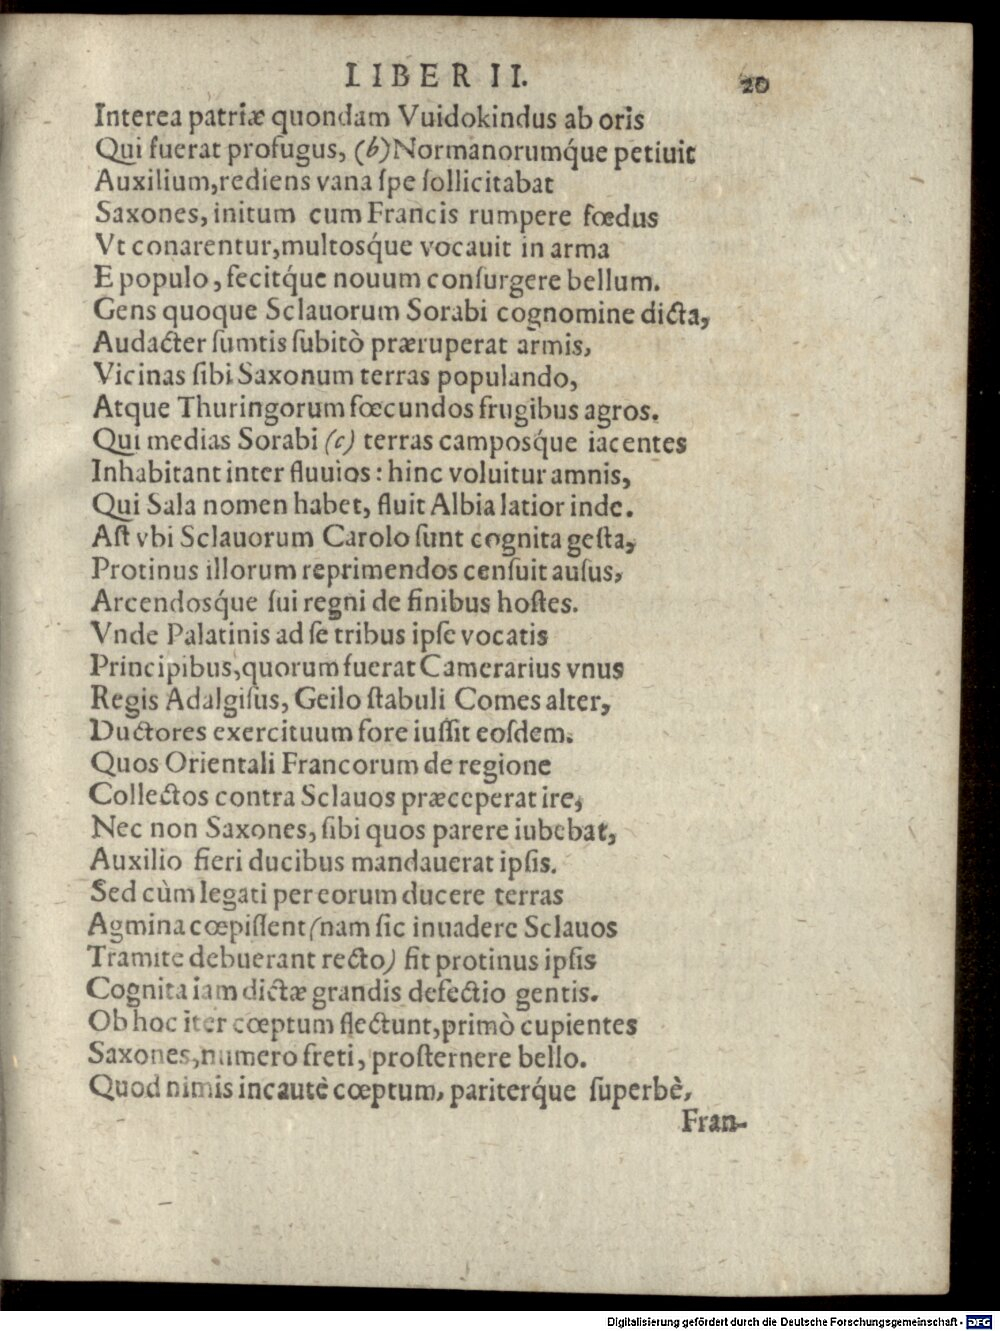 LIBER II. 20
Interea patriæ quondam Vuidokindus ab oris
Qui fuerat profugus, (b) Normanorumq́ue petiuit
Auxilium, rediens vana ſpe ſollicitabat
Saxones, initum cum Francis rumpere fœdus
Vt conarentur, multosq́ue vocauit in arma
E populo, fecitq́ue nouum conſurgere bellum.
Gens quoque Sclauorum Sorabi cognomine dicta,
Audacter ſumtis ſubitò præruperat armis,
Vicinas ſibi Saxonum terras populando,
Atque Thuringorum fœcundos frugibus agros.
Qui medias Sorabi (c) terras camposq́ue iacentes
Inhabitant inter fluuios: hinc voluitur amnis,
Qui Sala nomen habet, fluit Albia latior inde.
Aſt vbi Sclauorum Carolo ſunt cognita geſta,
Protinus illorum reprimendos cenſuit auſus,
Arcendosq́ue ſui regni de finibus hoſtes.
Vnde Palatinis ad ſe tribus ipſe vocatis
Principibus, quorum fuerat Camerarius vnus
Regis Adalgiſus, Geilo ſtabuli Comes alter,
Ductores exercituum fore iuſſit eoſdem.
Quos Orientali Francorum de regione
Collectos contra Sclauos præceperat ire,
Nec non Saxones, ſibi quos parere iubebat,
Auxilio fieri ducibus mandauerat ipſis.
Sed cùm legati per eorum ducere terras
Agmina cœpiſſent (nam ſic inuadere Sclauos
Tramite debuerant recto) fit protinus ipſis
Cognita iam dictæ grandis defectio gentis.
Ob hoc iter cœptum flectunt, primò cupientes
Saxones, numero freti, proſternere bello.
Quod nimis incautè cœptum, pariterq́ue ſuperbè,
Fran-
Digitalisierung gefördert durch die Deutsche Forschungsgemeinschaft - DFG